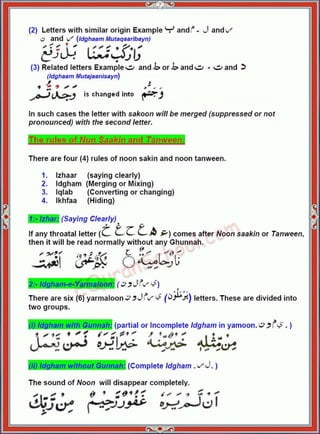 (2) Letters with similar origin Example ب and م - ل and ر
ن and ر (Idghaam Mutaqaaribayn)
(3) Related letters Example ت and ط or ط and ت - ت and د
(Idghaam Mutajaanisayn)
is changed into
In such cases the letter with sakoon will be merged (suppressed or not
pronounced) with the second letter.
The rules of Nun Saakin and Tanween:
There are four (4) rules of noon sakin and noon tanween.
1. Izhaar (saying clearly)
2. Idgham (Merging or Mixing)
3. Iqlab (Converting or changing)
4. Ikhfaa (Hiding)
1:- Izhar: (Saying Clearly)
If any throatal letter (ء ه ع ح غ خ) comes after Noon saakin or Tanween,
then it will be read normally without any Ghunnah.
نَارٌ حَامِيَةٌ
2:- Idgham-e-Yarmaloon: (ی ر م ل و ن)
There are six (6) yarmaloon ی ر م ل و ن (يَرْمَلُوْنَ) letters. These are divided into
two groups.
(i) Idgham with Gunnah: (partial or Incomplete Idgham in yamoon. ی م و ن .)
(ii) Idgham without Gunnah: (Complete Idgham . ل ر .)
The sound of Noon will disappear completely.
مِنْ رَّبِّكَ غَفُوْرٌ رَّحِيْمٌ اَنْ لَّمْ يَرَهٗ